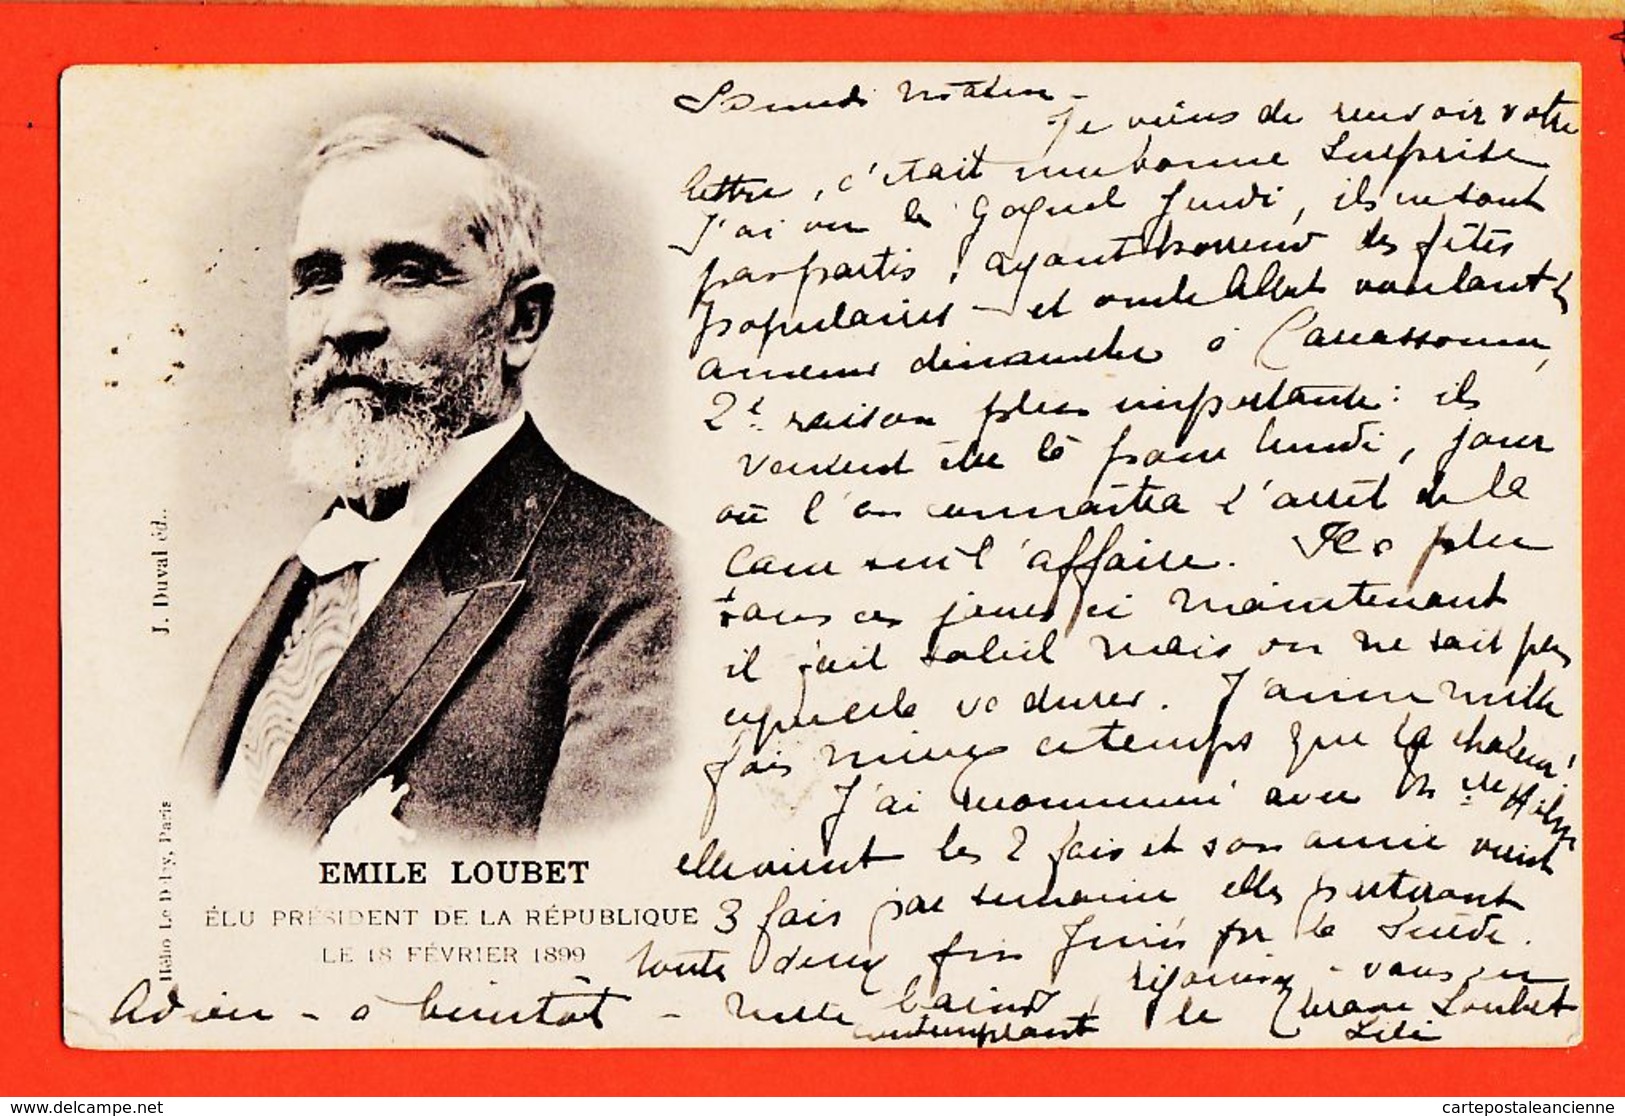 Samedi matin -
Je viens de recevoir votre
lettre, c'était une bonne surprise
J'ai vu les Goguel Jeudi, ils ne sont
pas partis, ayant horreur des fêtes
populaires - et oncle Albert voulant les
amener dimanche à Carcassonne,
2e raison plus importante: ils
veulent être là pour lundi, jour
où l'on connaîtra l'arrêt de la
Cour sur l'affaire. Il a plu
tous ces jours ci maintenant
il fait soleil mais on ne sait pas
ce que cela va durer. J'aime mille
fois mieux ce temps que la chaleur!
J'ai commencé avec Mlle
elle vient les 2 fois et son amie vient
3 fois par semaine elles partiront
toutes deux fin Juin pr la Suède.
Adieu - à bientôt - mille baisers réjouissez-vous en
contemplant le brave Loubet
Lili
EMILE LOUBET
ÉLU PRÉSIDENT DE LA RÉPUBLIQUE
LE 18 FÉVRIER 1899
J. Duval éd..
Hélio Le Deley, Paris
delcampe.net
cartepostaleancienne